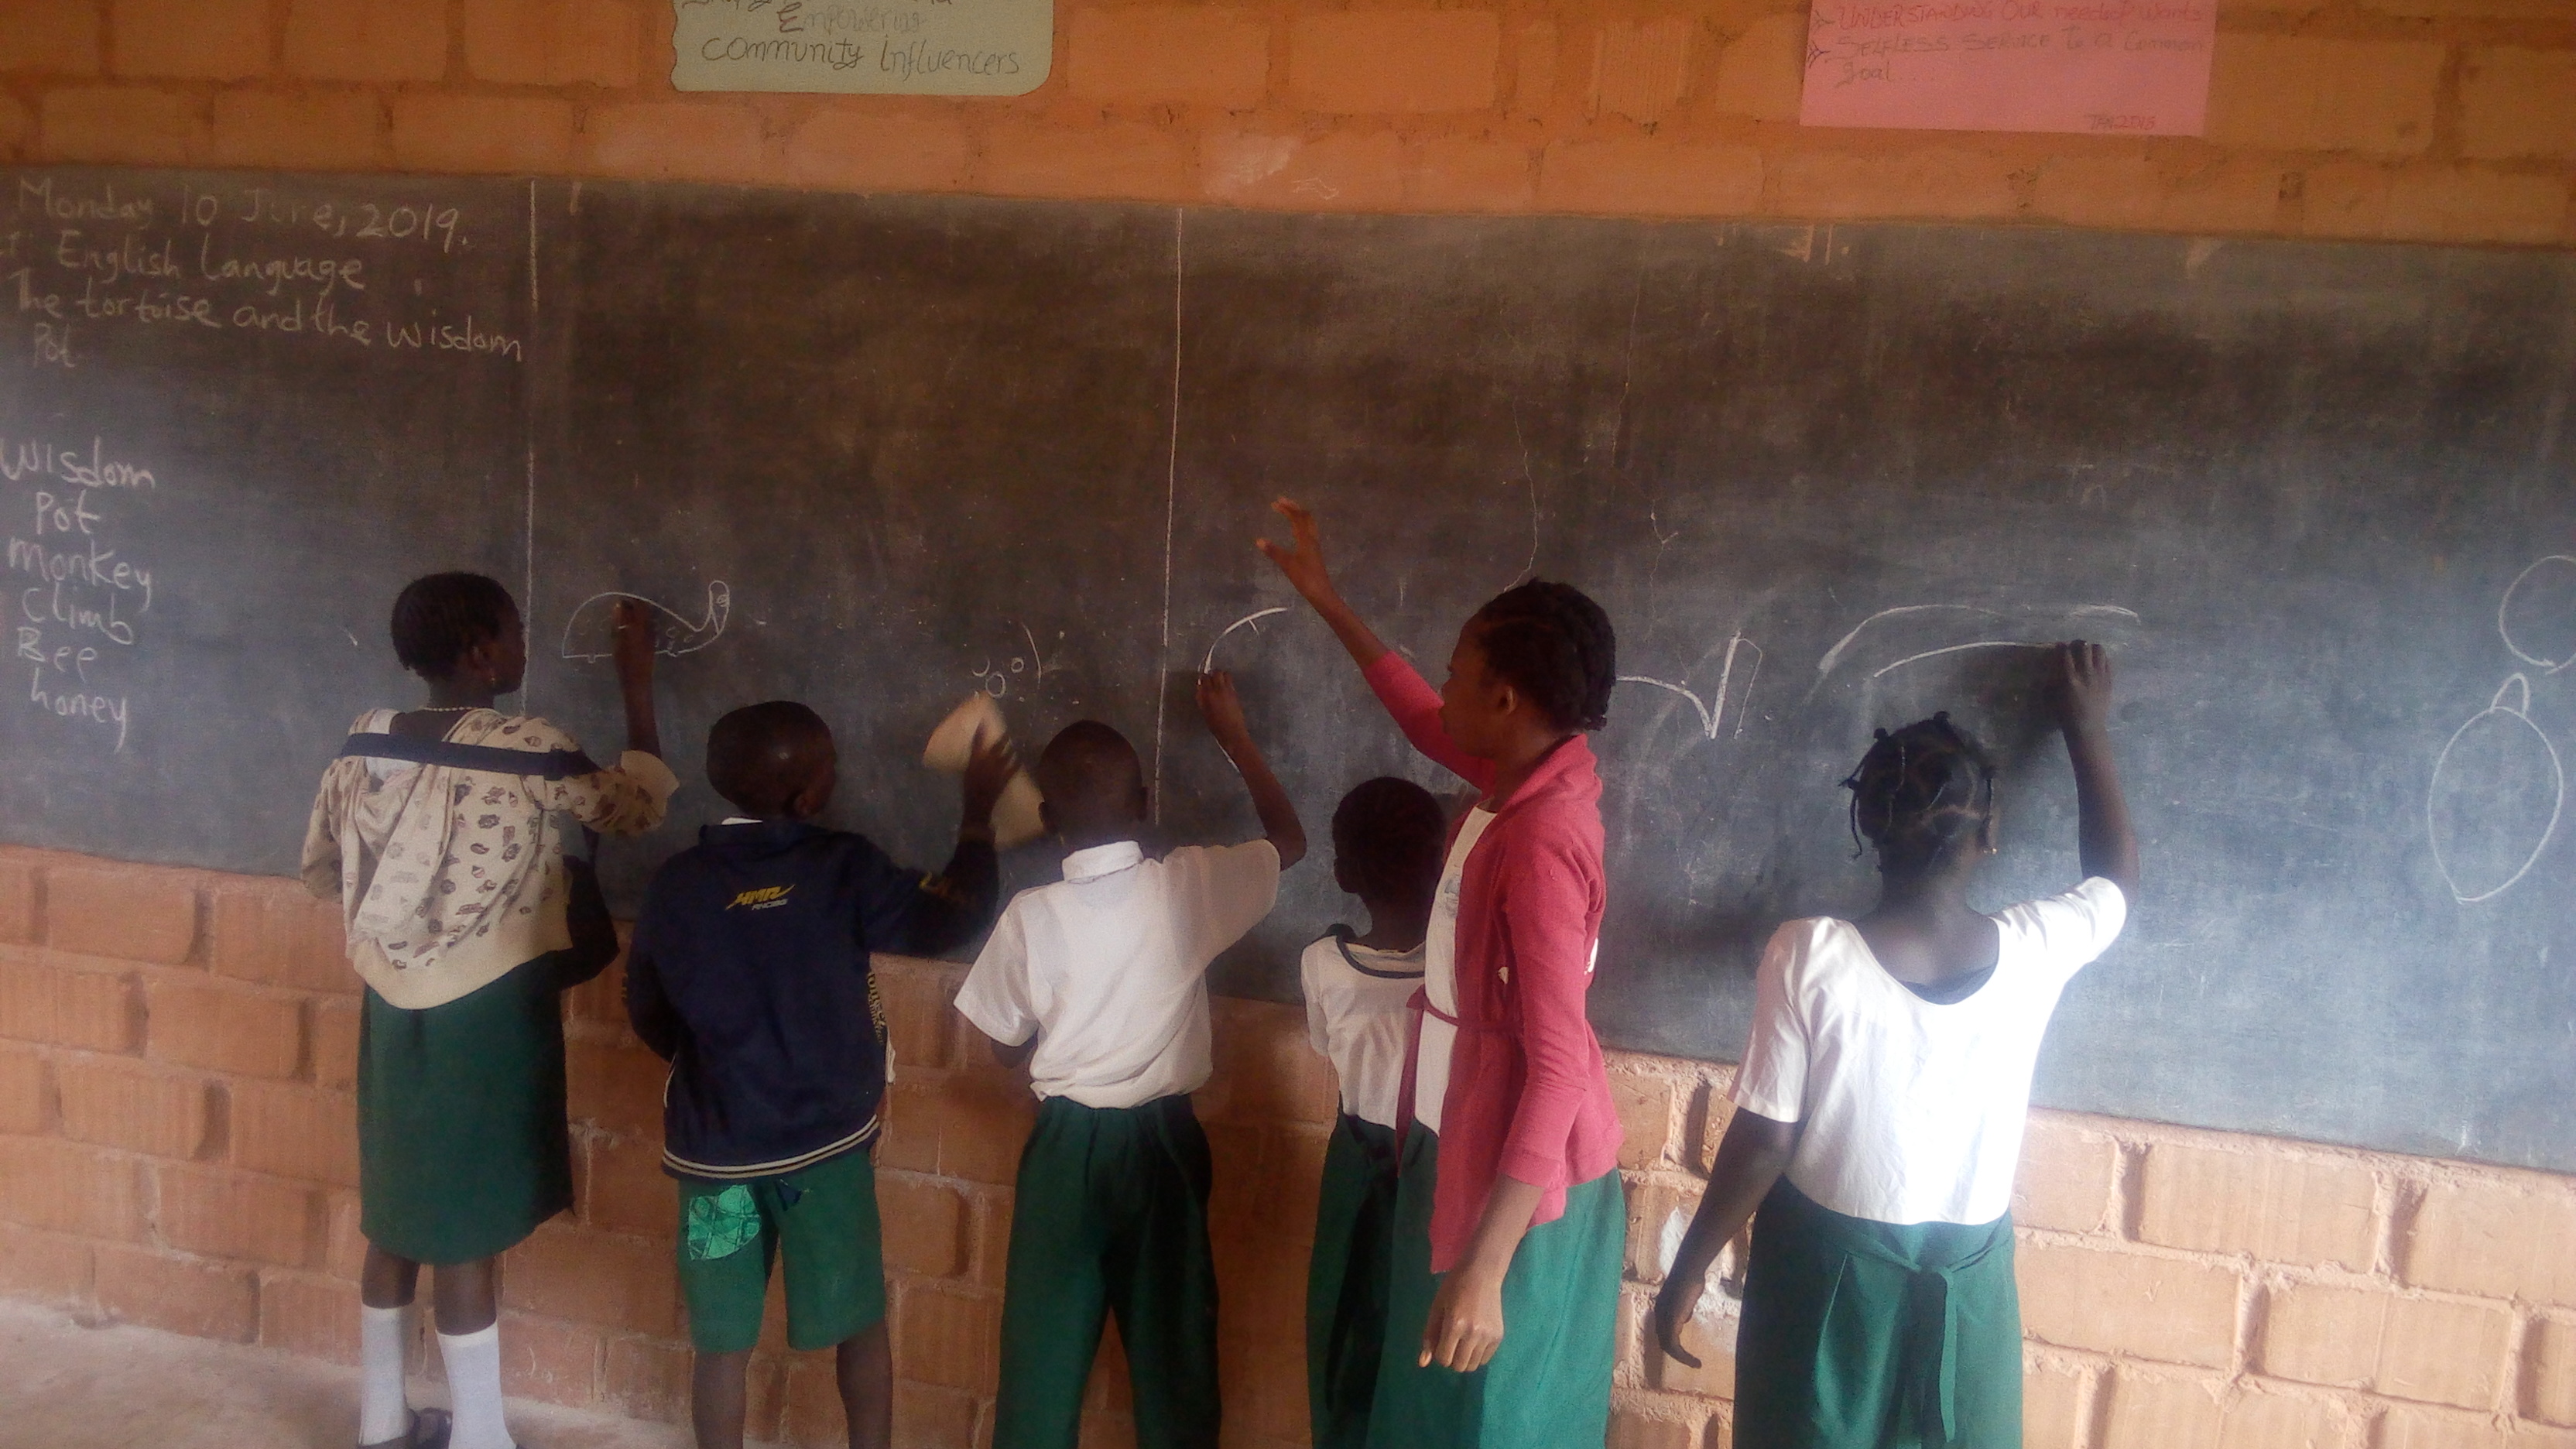 Empowering
Community Influencers
UNDERSTANDING OUR needs & wants
SELFLESS SERVICE to a Common
goal...
Monday 10 June, 2019.
English Language
The tortoise and the wisdom
Pot
Wisdom
Pot
monkey
Climb
Bee
honey
HMR
RACING